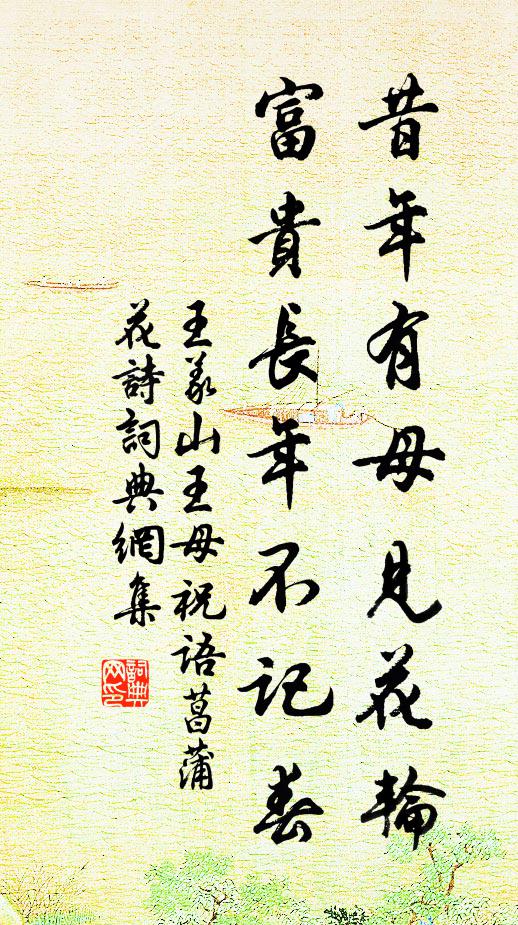 昔年有母見花輪
富貴長年不記春
王義山王母祝語菖蒲
花詩詞典網集
詞典
网印